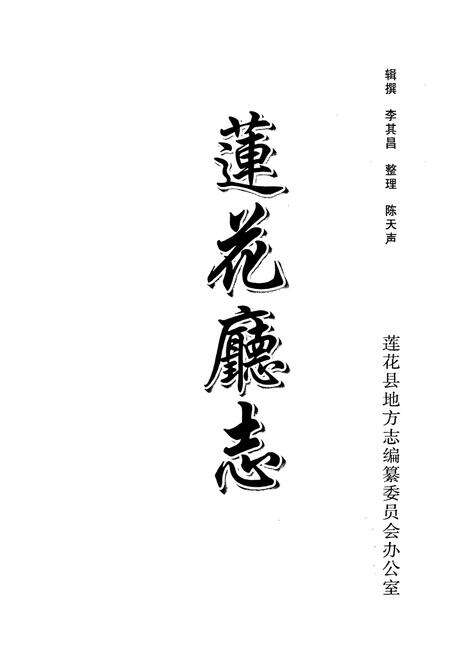 辑撰 李其昌 整理 陈天声
莲花县地方志编纂委员会办公室
蓮花廳志